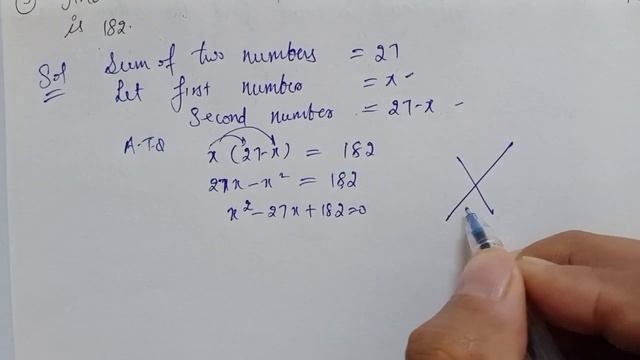 is 182.
Sol Sum of two numbers = 27
Let first number = x
Second number = 27-x
A.T.Q x (27-x) = 182
27x - x² = 182
x² - 27x + 182 = 0